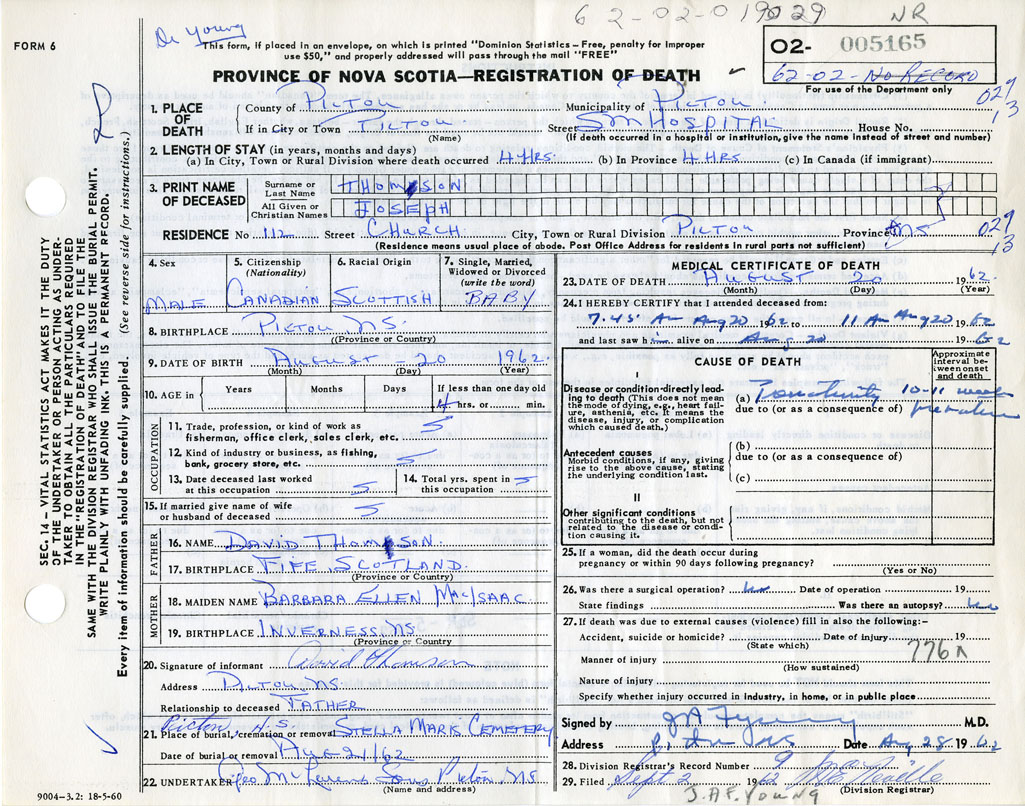 62-02-019029 NR
De Young
FORM 6
This form, if placed in an envelope, on which is printed "Dominion Statistics – Free, penalty for improper
use $50," and properly addressed will pass through the mail "FREE"
O2- 005165
62-02- No Record
For use of the Department only
PROVINCE OF NOVA SCOTIA—REGISTRATION OF DEATH
029
13
1. PLACE OF DEATH County of PICTOU Municipality of PICTOU
If in City or Town PICTOU (Name) Street SM HOSPITAL House No.
(If death occurred in a hospital or institution, give the name instead of street and number)
2. LENGTH OF STAY (in years, months and days)
(a) In City, Town or Rural Division where death occurred 4 HRS. (b) In Province 4 HRS. (c) In Canada (if immigrant)
3. PRINT NAME OF DECEASED Surname or Last Name THOMSON
All Given or Christian Names JOSEPH
RESIDENCE No 112 Street CHURCH City, Town or Rural Division PICTOU Province NS
029
13
(Residence means usual place of abode. Post Office Address for residents in rural parts not sufficient)
4. Sex MALE
5. Citizenship (Nationality) CANADIAN
6. Racial Origin SCOTTISH
7. Single, Married, Widowed or Divorced (write the word) BABY
8. BIRTHPLACE PICTOU NS.
(Province or Country)
9. DATE OF BIRTH AUGUST – 20 1962
(Month) (Day) (Year)
10. AGE in Years Months Days If less than one day old
4 hrs. or min.
OCCUPATION
11. Trade, profession, or kind of work as
fisherman, office clerk, sales clerk, etc.
12. Kind of industry or business, as fishing,
bank, grocery store, etc.
13. Date deceased last worked
at this occupation
14. Total yrs. spent in
this occupation
15. If married give name of wife
or husband of deceased
FATHER
16. NAME DAVID THOMSON.
17. BIRTHPLACE FIFE, SCOTLAND.
(Province or Country)
MOTHER
18. MAIDEN NAME BARBARA ELLEN MACISAAC
19. BIRTHPLACE INVERNESS NS.
(Province or Country
20. Signature of informant David Thomson
Address PICTOU NS.
Relationship to deceased FATHER
Pictou, N.S.
21. Place of burial, cremation or removal STELLA MARIS CEMETERY
Date of burial or removal AUG 21/62
22. UNDERTAKER Geo McLaren & Sons Pictou NS
(Name and address)
MEDICAL CERTIFICATE OF DEATH
23. DATE OF DEATH AUGUST 20 1962
(Month) (Day) (Year)
24. I HEREBY CERTIFY that I attended deceased from:
7.45 Am Aug 20 1962 to 11 Am Aug 20 1962
and last saw him alive on Aug 20 1962
CAUSE OF DEATH
Approximate interval between onset and death
I
Disease or condition directly leading to death (This does not mean the mode of dying, e.g., heart failure, asthenia, etc. It means the disease, injury, or complication which caused death.)
(a) 10-11 weeks
due to (or as a consequence of) premature
Antecedent causes
Morbid conditions, if any, giving rise to the above cause, stating the underlying condition last.
(b)
due to (or as a consequence of)
(c)
II
Other significant conditions
contributing to the death, but not related to the disease or condition causing it.
25. If a woman, did the death occur during
pregnancy or within 90 days following pregnancy?
(Yes or No)
26. Was there a surgical operation? no Date of operation 19
State findings Was there an autopsy? no
27. If death was due to external causes (violence) fill in also the following:-
Accident, suicide or homicide? Date of injury 19
(State which)
776X
Manner of injury
(How sustained)
Nature of injury
Specify whether injury occurred in industry, in home, or in public place
Signed by J A F Young M.D.
Address Pictou NS Date Aug 28 1962
28. Division Registrar's Record Number 9
29. Filed Sept 2 1962
(Division Registrar)
J.A.F. YOUNG
SEC. 14 – VITAL STATISTICS ACT MAKES IT THE DUTY
OF THE UNDERTAKER OR PERSON ACTING AS UNDER-
TAKER TO OBTAIN ALL THE PARTICULARS REQUIRED
IN THE "REGISTRATION OF DEATH" AND TO FILE THE
SAME WITH THE DIVISION REGISTRAR WHO SHALL ISSUE THE BURIAL PERMIT.
WRITE PLAINLY WITH UNFADING INK. THIS IS A PERMANENT RECORD.
Every item of information should be carefully supplied. (See reverse side for instructions.)
9004-3.2: 18-5-60